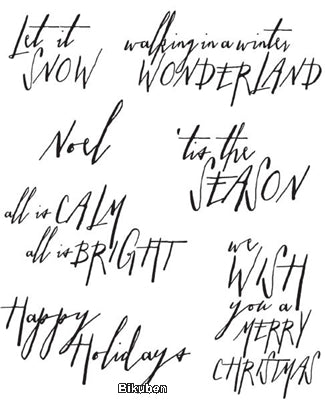 Let it
SNOW
walking in a winter
WONDERLAND
Noel
'tis the
SEASON
all is CALM
all is BRIGHT
we
WISH
you a
MERRY
CHRISTMAS
Happy
Holidays
Bikuben